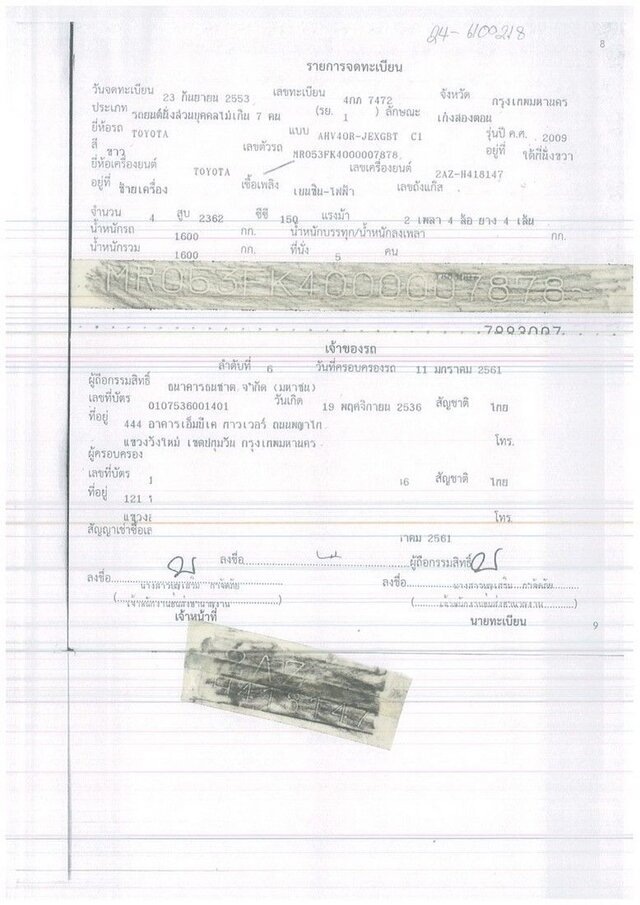 24-6100218
8
รายการจดทะเบียน
วันจดทะเบียน 23 กันยายน 2553 เลขทะเบียน 4กภ 7472 จังหวัด กรุงเทพมหานคร
ประเภท รถยนต์นั่งส่วนบุคคลไม่เกิน 7 คน (รย. 1 ) ลักษณะ เก๋งสองตอน
ยี่ห้อรถ TOYOTA แบบ AHV40R-JEXGBT C1 รุ่นปี ค.ศ. 2009
สี ขาว เลขตัวรถ MR053FK4000007878 อยู่ที่ ใต้ที่นั่งขวา
ยี่ห้อเครื่องยนต์ TOYOTA เลขเครื่องยนต์ 2AZ-H418147
อยู่ที่ ซ้ายเครื่อง เชื้อเพลิง เบนซิน-ไฟฟ้า เลขถังแก๊ส
จำนวน 4 สูบ 2362 ซีซี 150 แรงม้า 2 เพลา 4 ล้อ ยาง 4 เส้น
น้ำหนักรถ 1600 กก. น้ำหนักบรรทุก/น้ำหนักลงเพลา กก.
น้ำหนักรวม 1600 กก. ที่นั่ง 5 คน
MR053FK4000007878
เจ้าของรถ
ลำดับที่ 6 วันที่ครอบครองรถ 11 มกราคม 2561
ผู้ถือกรรมสิทธิ์ ธนาคารธนชาต จำกัด (มหาชน)
เลขที่บัตร 0107536001401 วันเกิด 19 พฤศจิกายน 2536 สัญชาติ ไทย
ที่อยู่ 444 อาคารเอ็มบีเค ทาวเวอร์ ถนนพญาไท
แขวงวังใหม่ เขตปทุมวัน กรุงเทพมหานคร โทร.
ผู้ครอบครอง
เลขที่บัตร 1 6 สัญชาติ ไทย
ที่อยู่ 121
แขวง โทร.
สัญญาเช่าซื้อเล าคม 2561
ลงชื่อ ผู้ถือกรรมสิทธิ์
ลงชื่อ ลงชื่อ
เจ้าหน้าที่ นายทะเบียน
9
2AZ
H418147